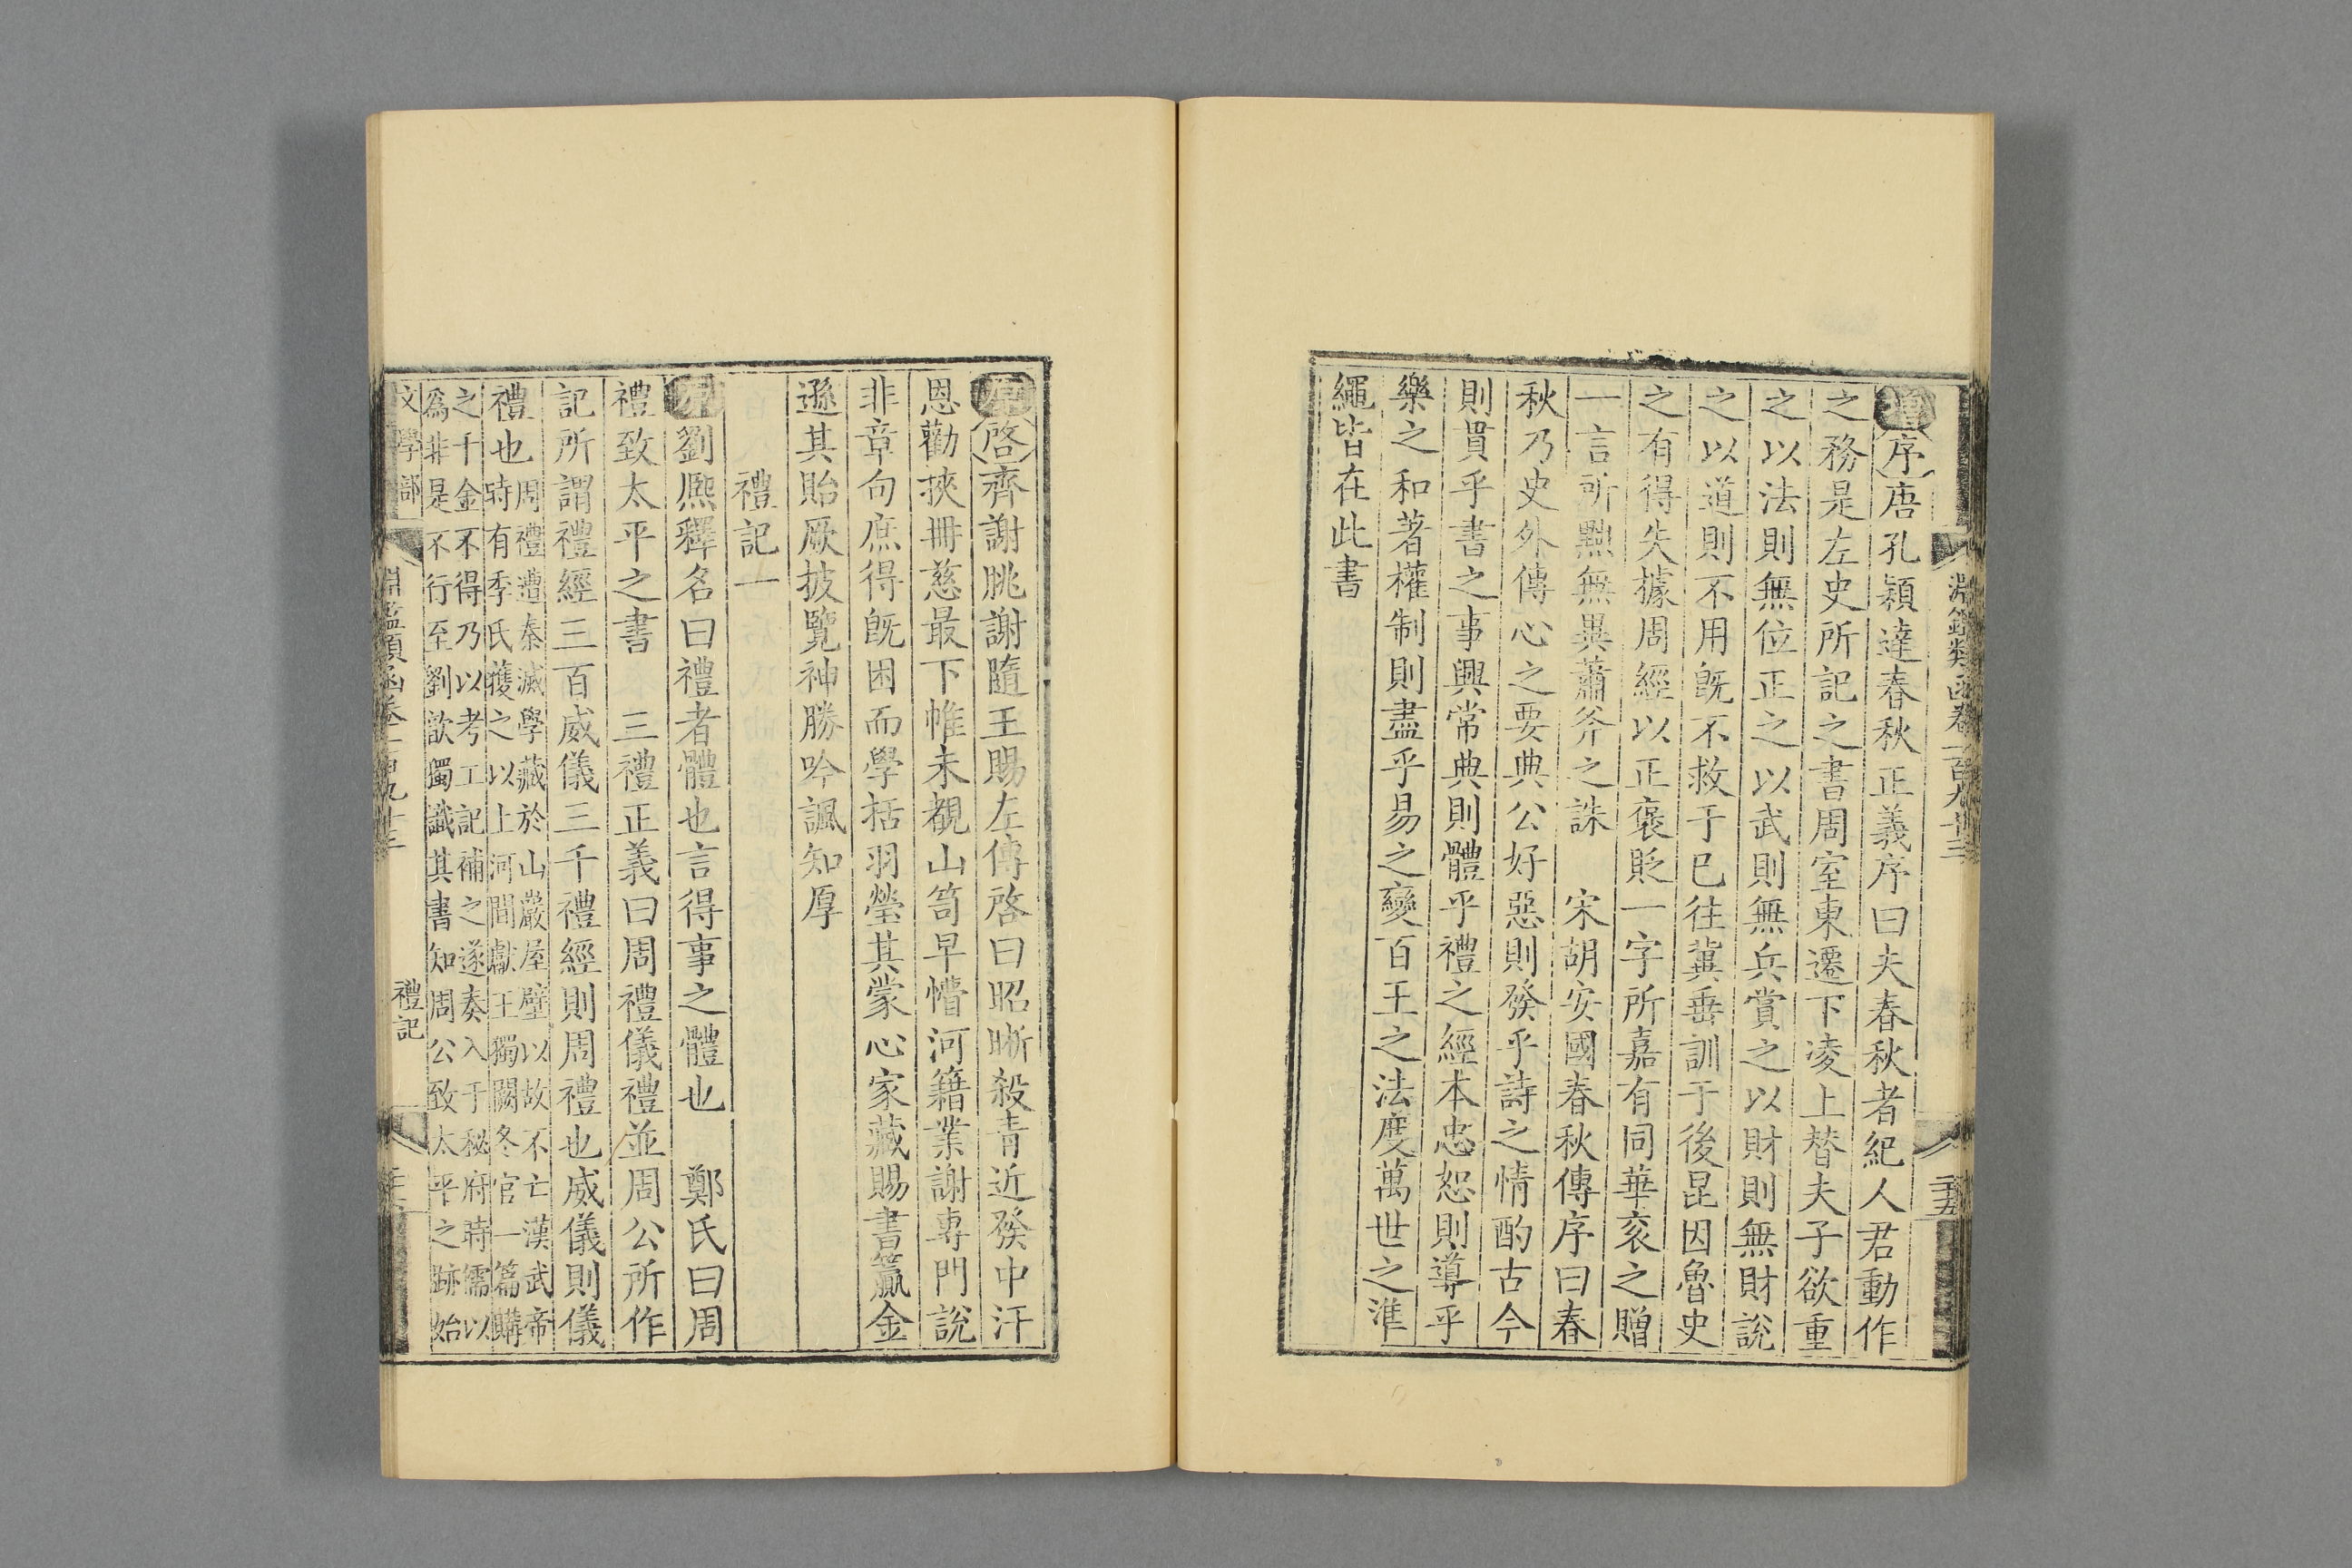 淵鑑類函卷一百九十三
增序唐孔穎達春秋正義序曰夫春秋者紀人君動作
之務是左史所記之書周室東遷下凌上替夫子欲重
之以法則無位正之以武則無兵賞之以財則無財說
之以道則不用旣不救于已往冀垂訓于後昆因魯史
之有得失據周經以正褒貶一字所嘉有同華衮之贈
一言所黜無異蕭斧之誅 宋胡安國春秋傳序曰春
秋乃史外傳心之要典公好惡則發乎詩之情酌古今
則貫乎書之事興常典則體乎禮之經本忠恕則導乎
樂之和著權制則盡乎易之變百王之法度萬世之準
繩皆在此書
原啓齊謝朓謝隨王賜左傳啓曰昭晰殺青近發中汗
恩勸挾冊慈最下帷未覩山笥早懵河籍業謝專門說
非章句庶得旣困而學括羽瑩其蒙心家藏賜書籯金
遜其貽厥披覽神勝吟諷知厚
禮記一
原劉熈釋名曰禮者體也言得事之體也 鄭氏曰周
禮致太平之書 三禮正義曰周禮儀禮並周公所作
記所謂禮經三百威儀三千禮經則周禮也威儀則儀
禮也周禮遭秦滅學藏於山巖屋壁以故不亡漢武帝
時有季氏獲之以上河間獻王獨闕冬官一篇購
之千金不得乃以考工記補之遂奏入于秘府時儒以
爲非是不行至劉歆獨識其書知周公致太平之跡始
文學部 淵鑑類函卷一百九十三 禮記